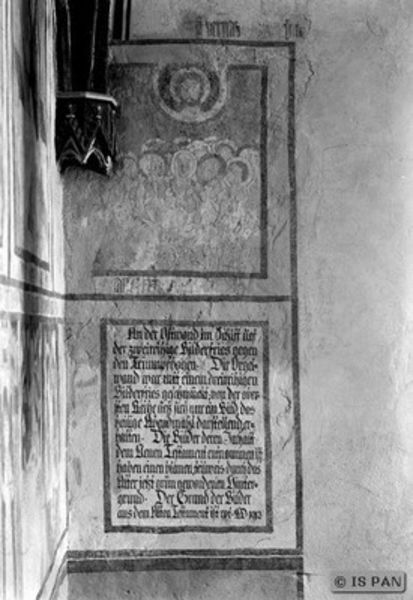 An der Ostwand im Schiff lief
der zweireihige Bilderfries gegen
den Triumphbogen. Die Orgel-
wand war mit einem dreireihigen
Bilderfries geschmückt, von der ober-
sten Reihe ließ sich nur ein Bild, das
heilige Abendmahl darstellend er-
halten. Die Bilder deren Inhalt
dem Neuen Testament entnommen ist
haben einen blauen, teilweis durch das
Alter jetzt grün gewordenen Hinter-
grund. Der Grund der Bilder
aus dem Alten Testament ist rot.
© IS PAN